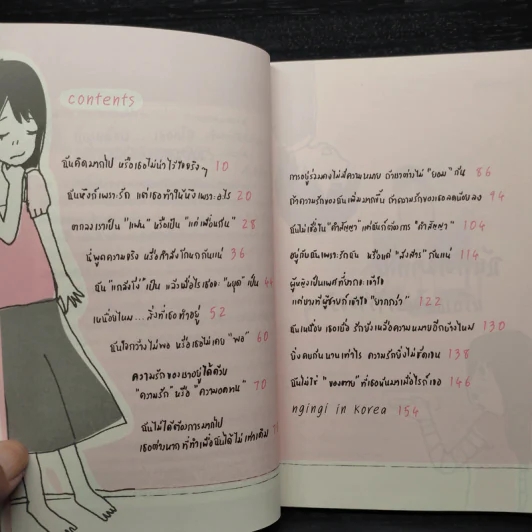 contents
ฉันคิดมากไป หรือเธอไม่น่าไว้ใจจริงๆ 10
ฉันหึงก็เพราะรัก แต่เธอทำให้หึงเพราะอะไร 20
ตกลงเราเป็น "แฟน" หรือเป็น "แค่เพื่อนกัน" 28
นี่พูดความจริง หรือกำลังโกหกกันแน่ 36
ฉัน "แกล้งโง่" เป็น แล้วเมื่อไรเธอจะ "หยุด" เป็น
เหนื่อยไหม...สิ่งที่เธอทำอยู่ 52
ฉันใจกว้างไม่พอ หรือเธอไม่เคย "พอ" 60
ความรักของเราอยู่ได้ด้วย
"ความรัก" หรือ "ความอดทน" 70
ฉันไม่ได้ต้องการมากไป
เธอต่างหากที่ทำเพื่อฉันได้ไม่เท่าเดิม
การอยู่ร่วมคงไม่มีความหมาย ถ้าเราต่างไม่ "ยอม" กัน 86
ถ้าความรักของฉันเพิ่มมากขึ้น ถ้าความรักของเธอลดน้อยลง 94
ฉันไม่เชื่อใน "คำสัญญา" แต่ฉันก็ต้องการ "คำสัญญา" 104
อยู่กับฉันเพราะรักฉัน หรือแค่ "สงสาร" กันแน่ 114
ผู้หญิงเป็นเพศที่ยากจะเข้าใจ
แต่บางทีผู้ชายก็เข้าใจ "ยากกว่า" 122
ฉันเหนื่อย เธอเบื่อ รักยังเหลือความหมายอีกบ้างไหม 130
ยิ่งคบกันนานเท่าไร ความรักยิ่งไม่ชัดเจน 138
ฉันไม่ใช่ "ของตาย" ที่เธอหันมาเมื่อไรก็เจอ 146
ngingi in Korea 154